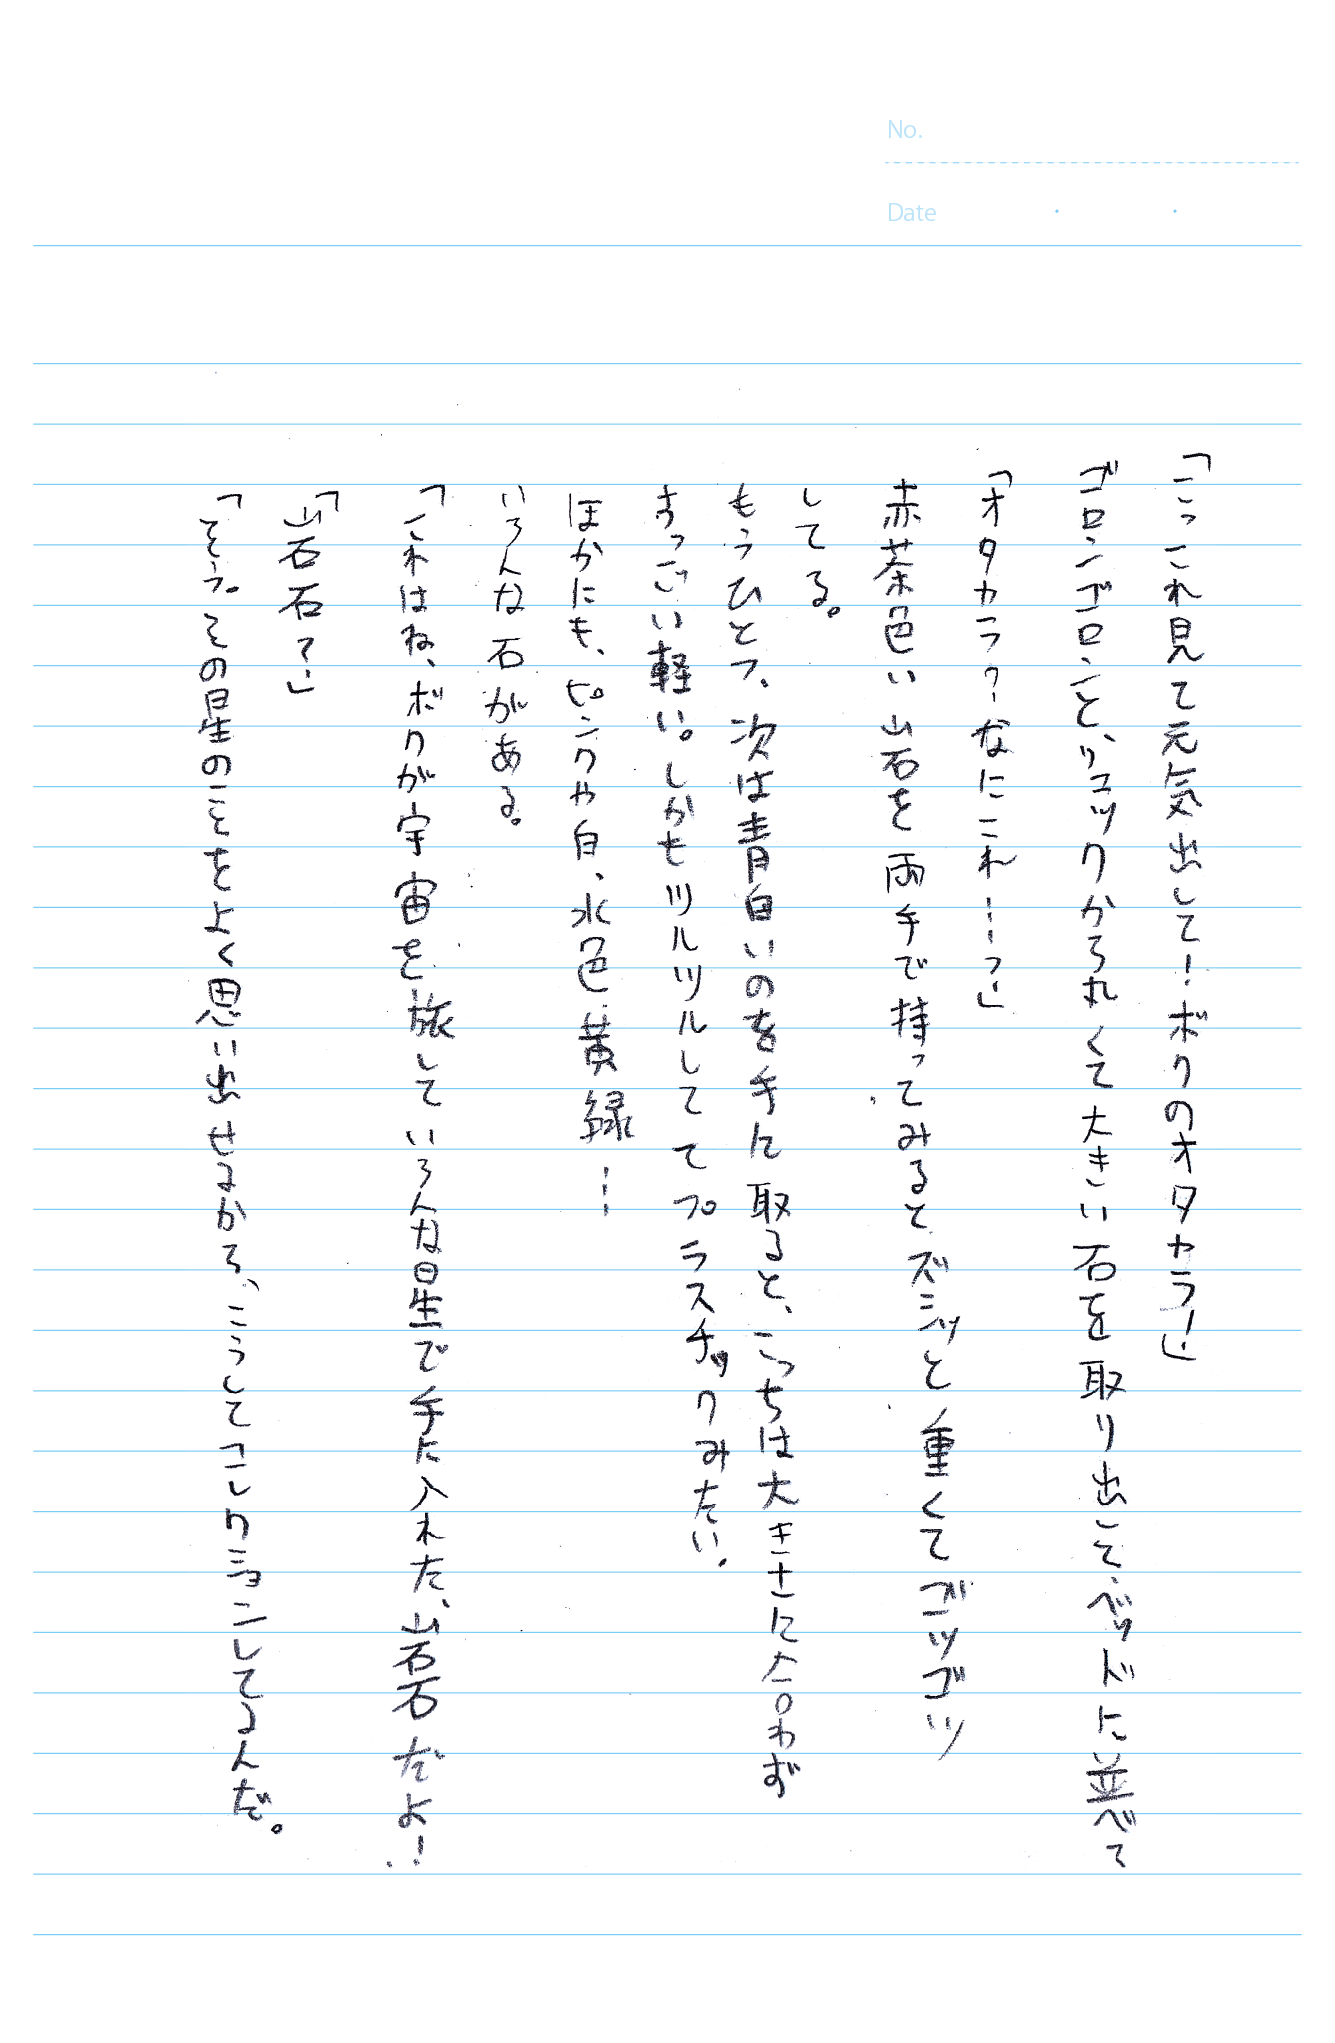 No.
Date
「こっこれ見て元気出して！ボクのオタカラ！」
ゴロンゴロンと、リュックから丸くて大きい石を取り出して、ベッドに並べて
「オタカラ？なにこれ……？」
赤茶色い岩を両手で持ってみると、ズシッと重くてゴツゴツ
してる。
もうひとつ、次は青白いのを手に取ると、こっちは大きさに合わず
すっごい軽い。しかもツルツルしててプラスチックみたい。
ほかにも、ピンクや白、水色、黄緑……
いろんな石がある。
「これはね、ボクが宇宙を旅していろんな星で手に入れた、岩石だよ！
「岩石？」
「そう。その星のことをよく思い出せるから、こうしてコレクションしてるんだ。